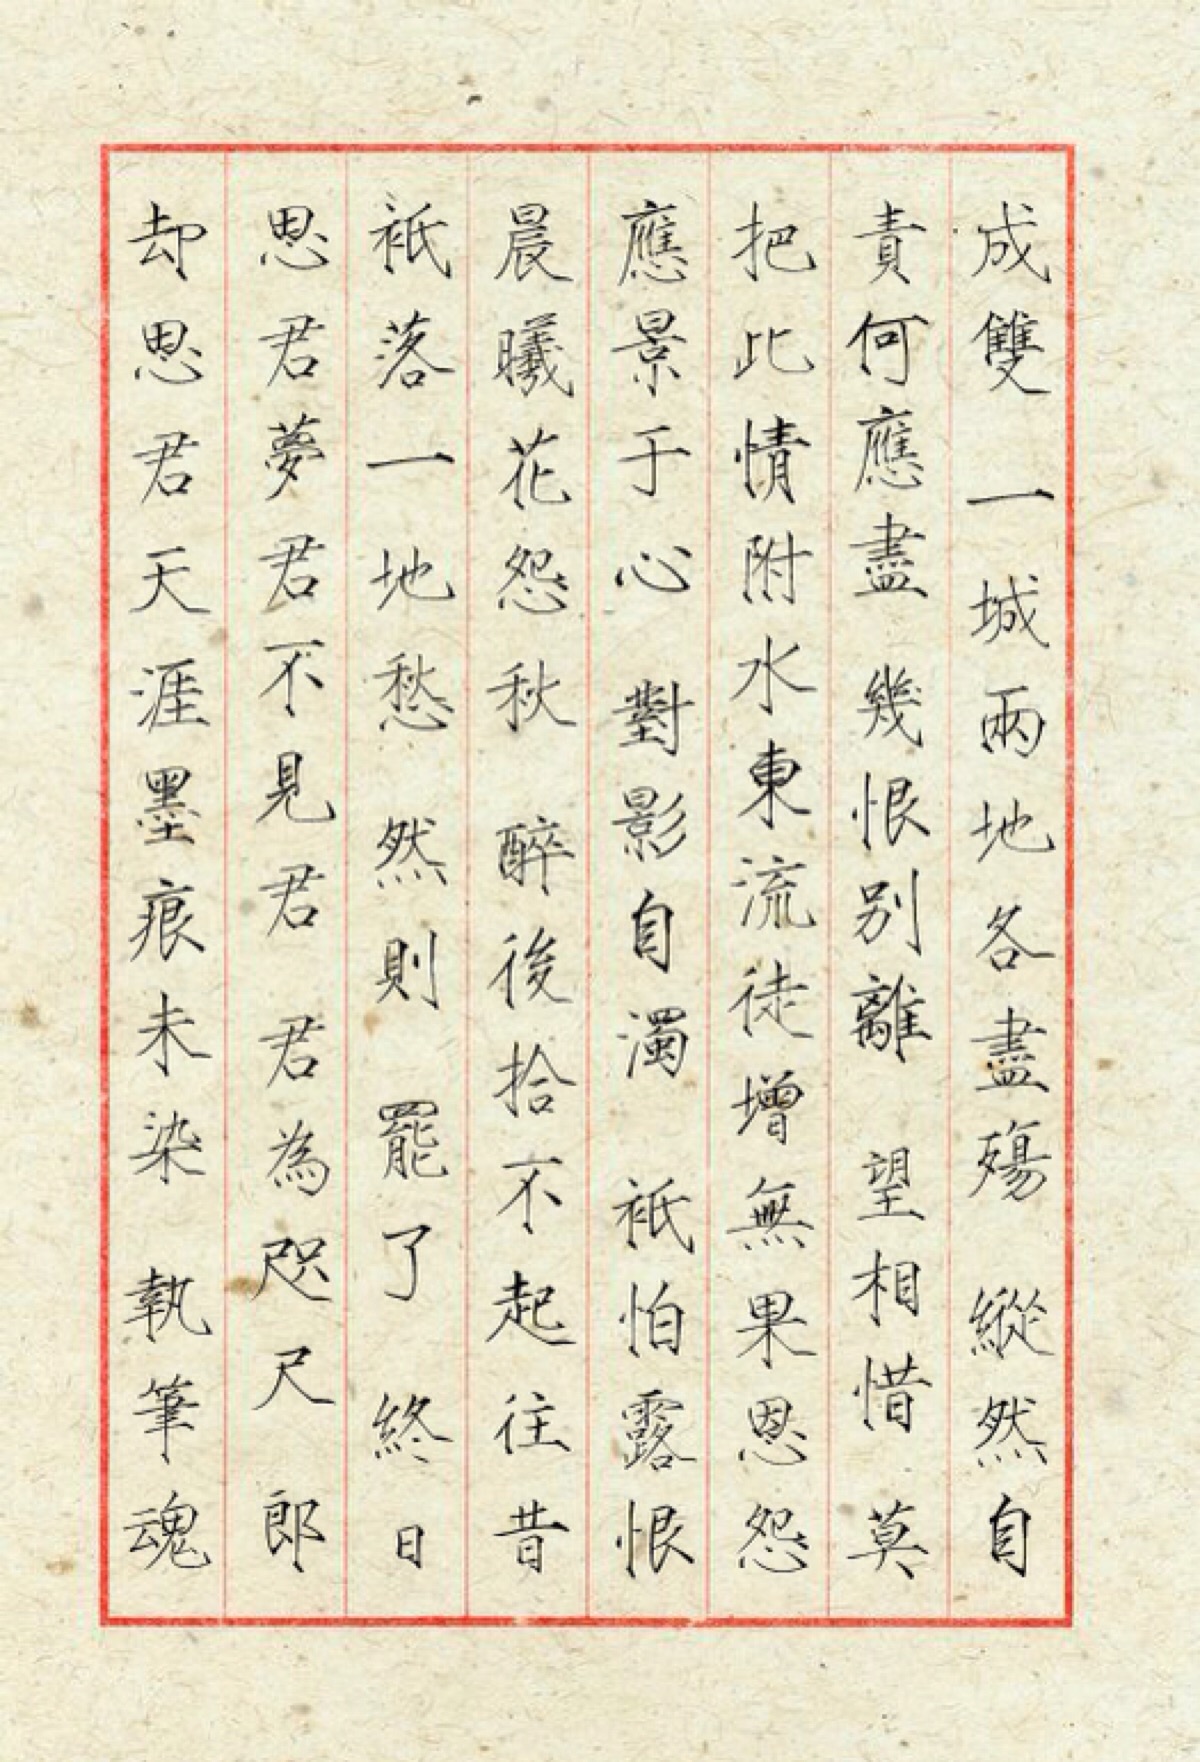 成雙 一城兩地各盡殤 縱然自
責何應盡 幾恨別離 望相惜 莫
把此情附水東流徒增無果恩怨
應景于心 對影自濁 衹怕露恨
晨曦花怨秋 醉後拾不起往昔
衹落一地愁 然則 罷了 終日
思君夢君不見君 君為咫尺 郎
却思君天涯墨痕未染 執筆魂